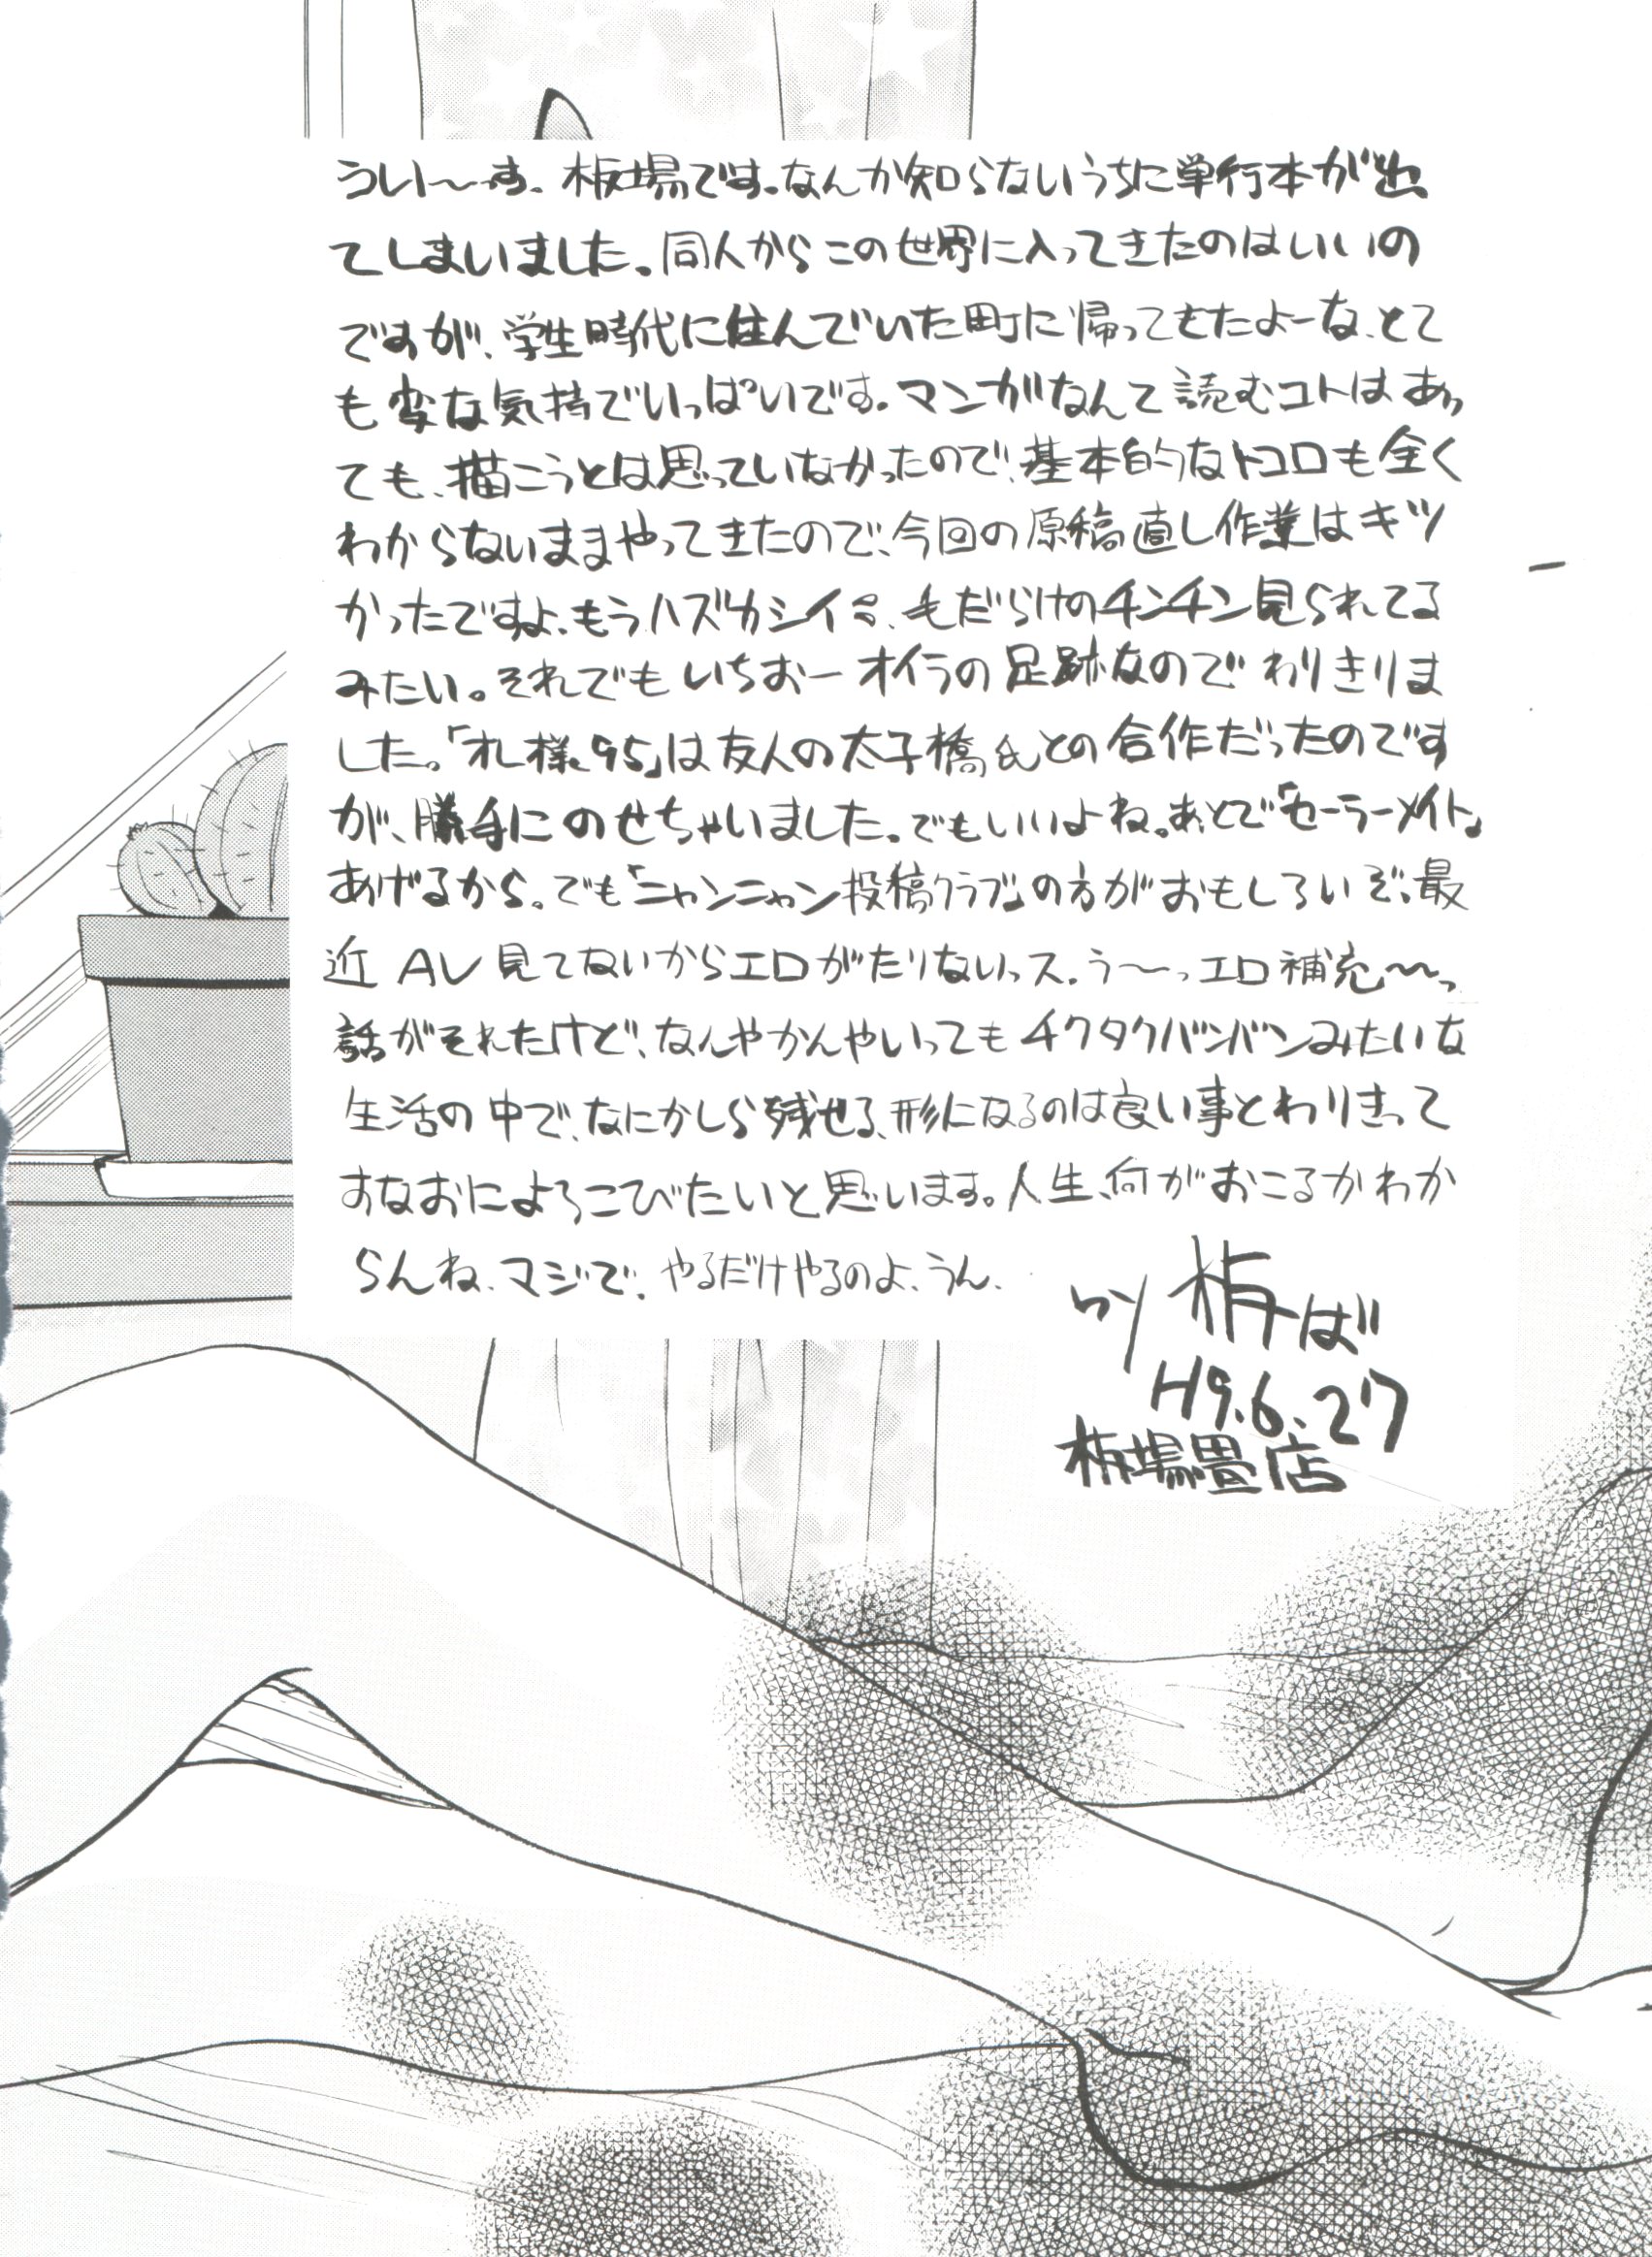 うい〜す。板場です。なんか知らないうちに単行本が出
てしまいました。同人からこの世界に入ってきたのはいいの
ですが、学生時代に住んでいた町に帰ってきたよーな、とて
も変な気持でいっぱいです。マンガなんて読むコトはあっ
ても、描こうとは思っていなかったので、基本的なトコロも全く
わからないままやってきたので、今回の原稿直し作業はキツ
かったですよ。もうハズカシイ、毛だらけのチンチン見られてる
みたい。それでもいちおーオイラの足跡なのでわりきりま
した。「札様95」は友人の太子橋氏との合作だったのです
が、勝手にのせちゃいました。でもいいよね。あとで「セーラーメイト」
あげるから。でも「ニャンニャン投稿クラブ」の方がおもしろいぞ。最
近AV見てないからエロがたりないっス。う〜っエロ補充〜っ
話がそれたけど、なんやかんやいってもチクタクバンバンみたいな
生活の中で、なにかしら残せる、形になるのは良い事とわりきって
すなおによろこびたいと思います。人生、何がおこるかわか
らんね、マジで。やるだけやるのよ、うん。
by 板ば
H9.6.27
板場畳店